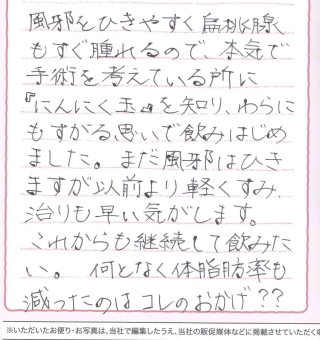 風邪をひきやすく扁桃腺
もすぐ腫れるので、本気で
手術を考えている所に
『にんにく玉』を知り、わらに
もすがる思いで飲みはじめ
ました。まだ風邪はひき
ますが以前より軽くすみ、
治りも早い気がします。
これからも継続して飲みた
い。 何となく体脂肪率も
減ったのはコレのおかげ??
※いただいたお便り・お写真は、当社で編集したうえ、当社の販促媒体などに掲載させていただく